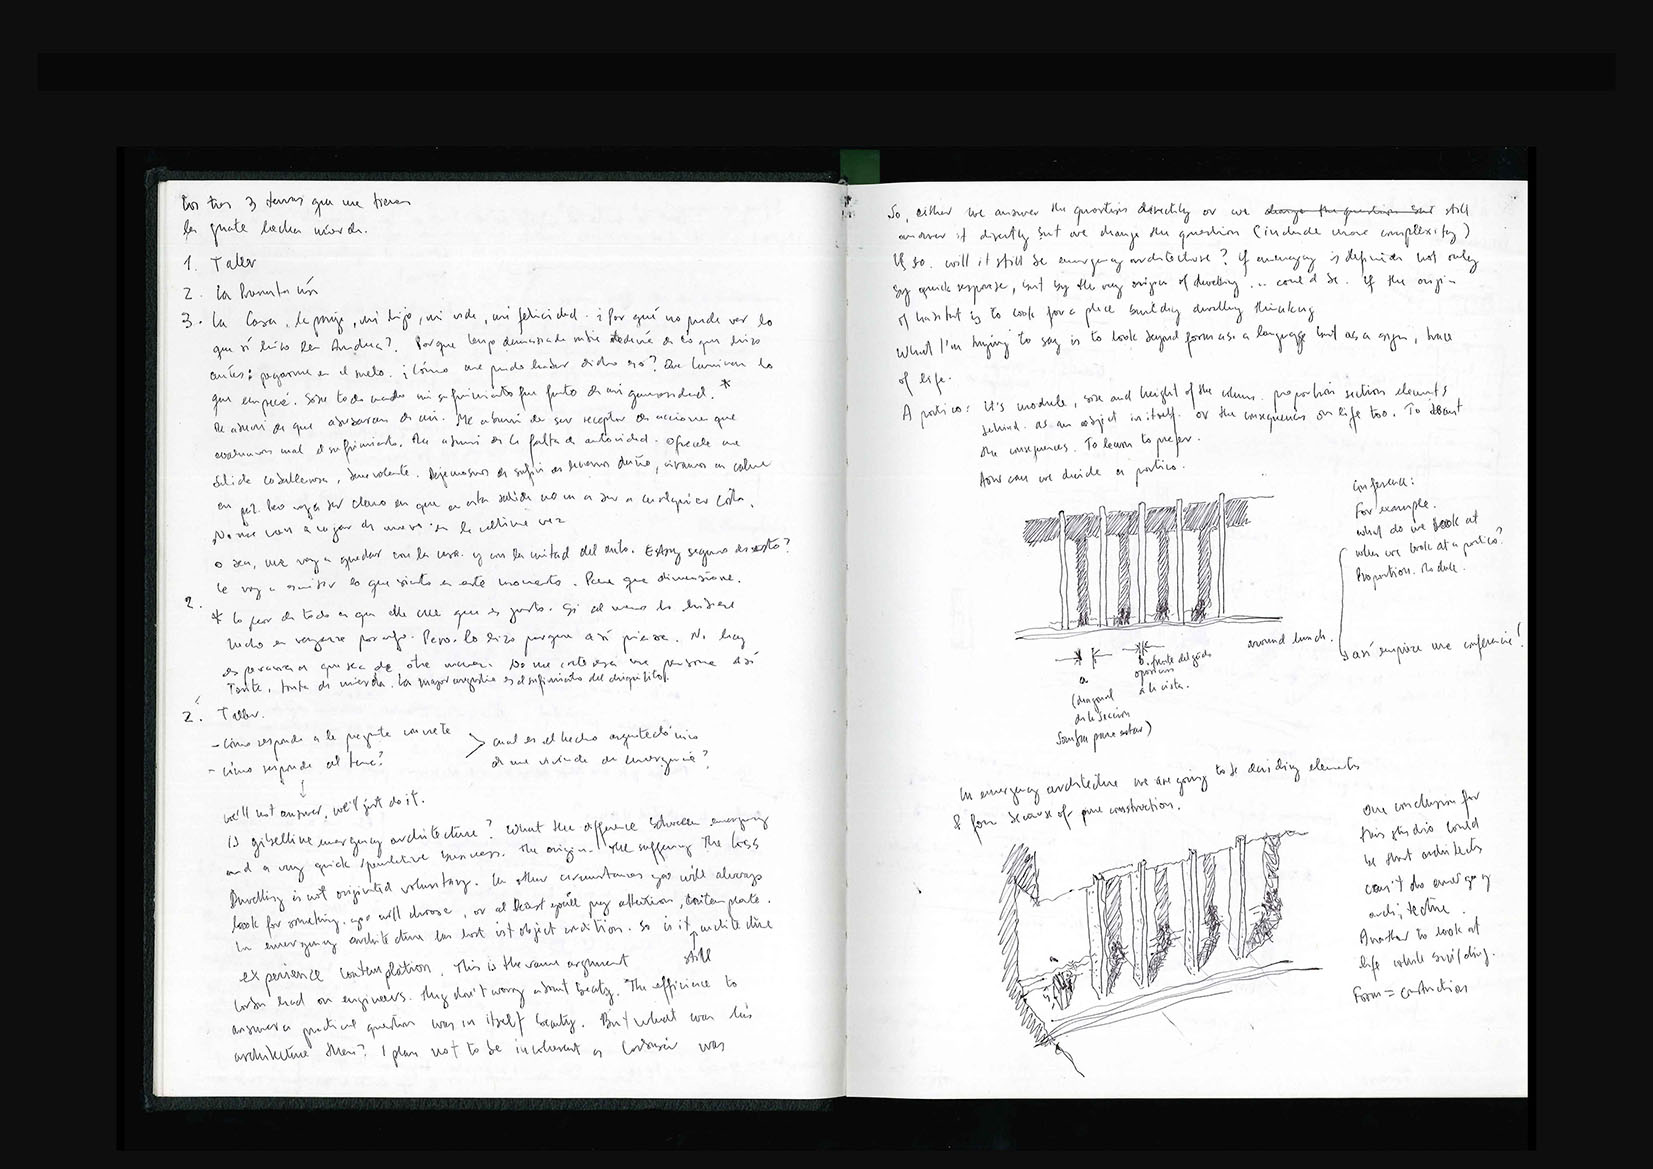 Los tres 3 temas que me tienen
la guata hecha mierda.
1. Taller
2. La Presentación
3. La Casa, la pareja, mi hijo, mi vida, mi felicidad. ¿Por qué no puede ver lo
que sí hizo
antes: pegarme en el suelo. ¿Cómo me pudo haber dicho eso? Que terminara lo
que empecé. Sobre todo cuando mi sufrimiento fue fruto de mi generosidad. *
Me aburrí de que abusaran de mí. Me aburrí de ser receptor de acciones que
evaluaron mal el sufrimiento. Me aburrí de la falta de autoridad. Ofrecele una
salida caballerosa, benevolente. Dejémosnos de sufrir es hacernos daño, vivamos en calma
en paz. Pero voy a ser claro en que esta salida no va a ser a cualquier costo.
No me van a cagar de nuevo. Es la última vez
o sea, me voy a quedar con la casa. y con la mitad del auto. Estoy seguro de esto?
Le voy a escribir lo que siento en este momento. Para que dimensione.
2.
* Lo peor de todo es que ella cree que es justo. Si al menos lo hubiese
hecho en venganza por algo. Pero lo hizo porque así piensa. No hay
esperanza que sea de otra manera. No me interesa una persona así
Tonta, tonta de mierda. La mayor angustia es el sufrimiento del chiquitito.
2. Taller.
- Cómo responde a la pregunta concreta
- Cómo responde al tema?
> cual es el hecho arquitectónico
de una vivienda de emergencia?
↓
we'll not answer, we'll just do it.
Is gibellina emergency architecture? What the difference between emergency
and a very quick speculative business. The origin. The suffering The loss
Dwelling is not originated voluntary. In other circumstances you will always
look for something. you will choose, or at least you'll pay attention, contemplate.
In emergency architecture has lost its object condition. So is it architecture
still
experience contemplation. This is the same argument
Corbu had on engineers. They don't worry about beauty. The efficience to
answer a practical question was in itself beauty. But what was his
architecture then? I plan not to be incoherent as Corbusier was
So, either we answer the questions directly or we change the question but still
answer it directly but we change the question (include more complexity)
If so. will it still be emergency architecture? If emergency is defined not only
by quick response, but by the very origin of dwelling ... could be. If the origin
of habitat is to look for a place building dwelling thinking
What I'm trying to say is to look beyond form as a language but as a sign, trace
of life.
A portico: it's module, size and height of the column. proportion section elements
behind. as an object in itself. or the consequences on life too. To draw
the consequences. To learn to prefer.
How can we decide a portico.
Conference:
For example.
what do we look at
when we look at a portico?
Proportion. Module.
así empieza una conferencia!
around lunch.
a
(diagonal
de la sección
sombra para estar)
b. frente delgado
oposición
a la vista.
In emergency architecture we are going to be deciding elements
& form because of pure construction.
One conclusion for
this studio could
be that architects
can't do emergency
architecture.
Another to look at
life while building.
Form = construction